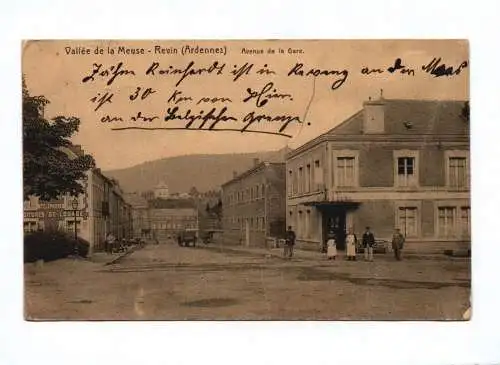 Vallée de la Meuse - Revin (Ardennes) Avenue de la Gare.
Reinhardt ist in Revin an der Maas
ist 30 Km von Hier.
an der Belgischen Grenze.